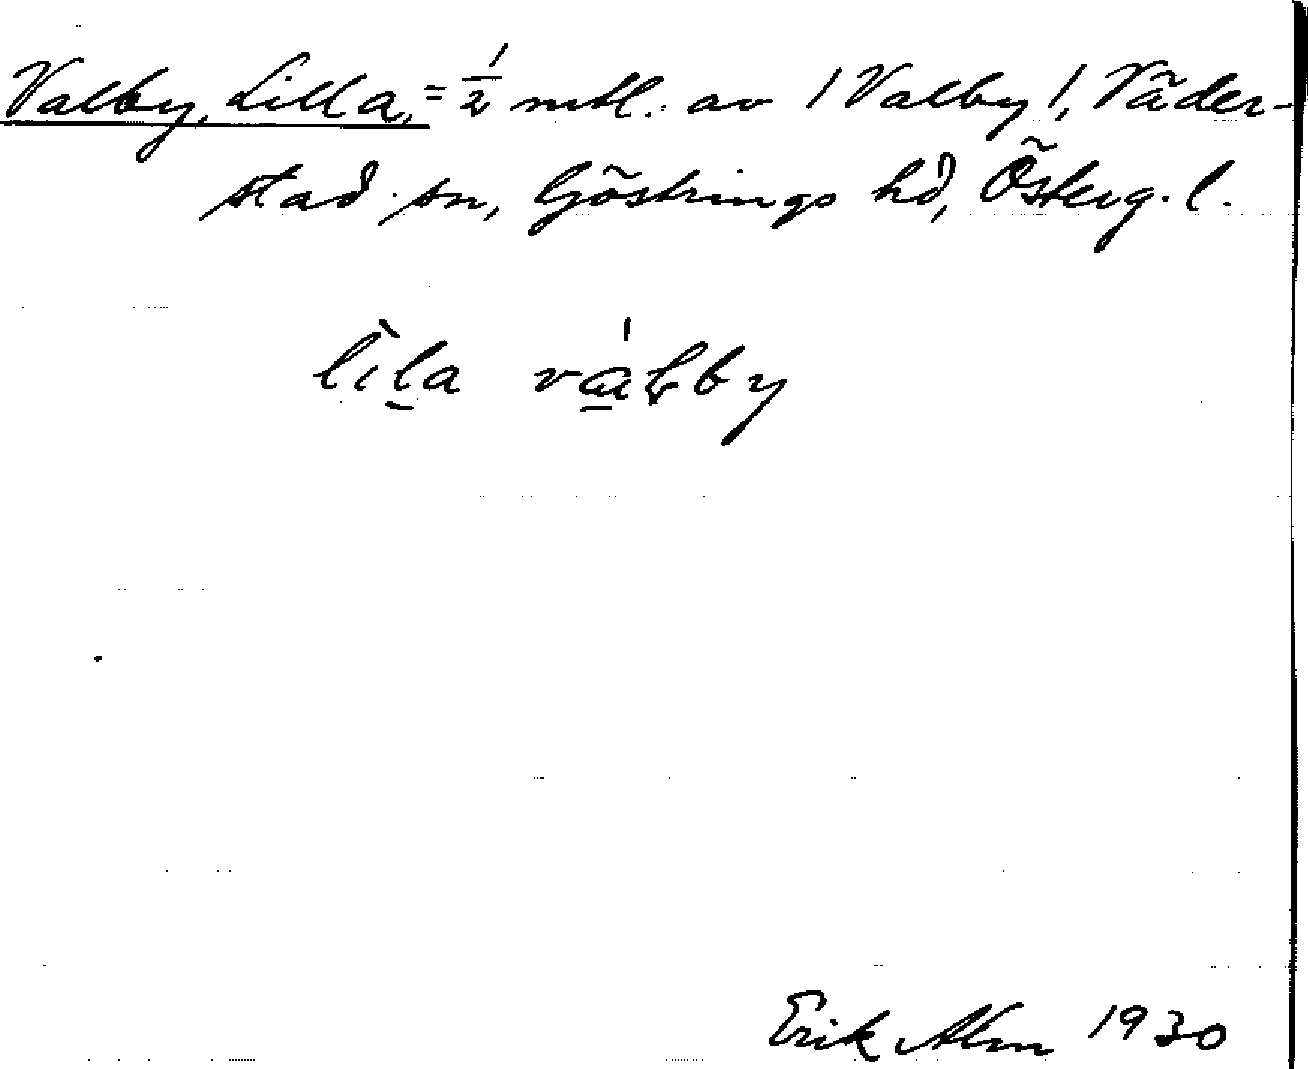 Valby, Lilla, = 1/2 mtl. av / Valby /, Väder-
stad sn, Göstrings hd, Österg. l.
lìl̠a vá̠ḷby
Erik Alm 1930